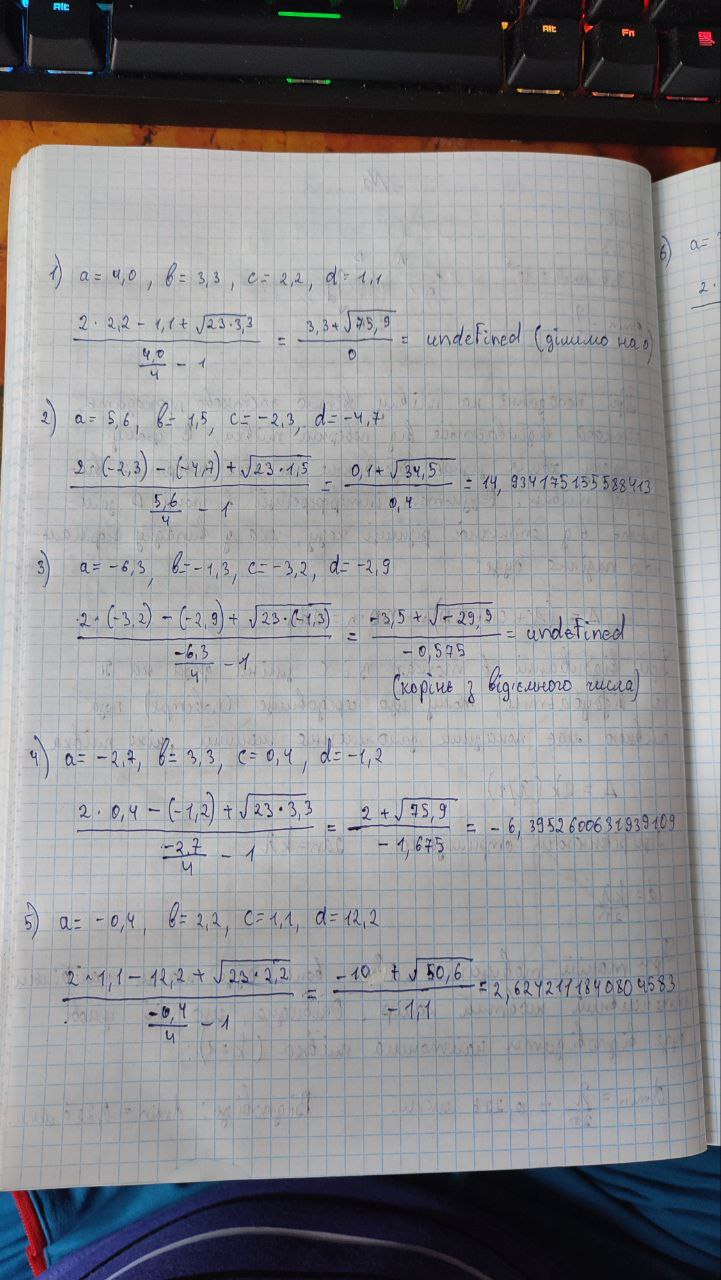 Alt
Alt
Fn
1) a = 4,0 , b = 3,3 , c = 2,2 , d = 1,1
(2 · 2,2 - 1,1 + √(23·3,3)) / (4,0/4 - 1) = (3,3 + √75,9) / 0 = undefined (ділимо на 0)
2) a = 5,6 , b = 1,5 , c = -2,3 , d = -4,7
(2 · (-2,3) - (-4,7) + √(23·1,5)) / (5,6/4 - 1) = (0,1 + √34,5) / 0,4 = 14,934175155588413
3) a = -6,3 , b = -1,3 , c = -3,2 , d = -2,9
(2 · (-3,2) - (-2,9) + √(23·(-1,3))) / (-6,3/4 - 1) = (-3,5 + √-29,9) / -0,575 = undefined
(корінь з від'ємного числа)
4) a = -2,7 , b = 3,3 , c = 0,4 , d = -1,2
(2 · 0,4 - (-1,2) + √(23·3,3)) / (-2,7/4 - 1) = (2 + √75,9) / -1,675 = -6,3952600631939109
5) a = -0,4 , b = 2,2 , c = 1,1 , d = 12,2
(2 · 1,1 - 12,2 + √(23·2,2)) / (-0,4/4 - 1) = (-10 + √50,6) / -1,1 = 2,6242111840804583
6) a =
2 ·